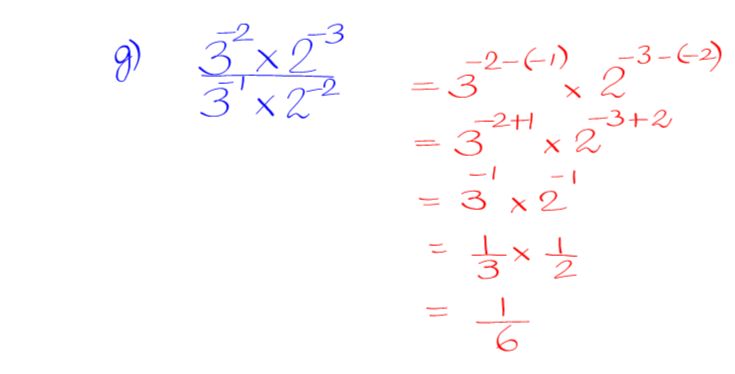 g) 3⁻² × 2⁻³ / 3⁻¹ × 2⁻²
= 3⁻²⁻⁽⁻¹⁾ × 2⁻³⁻⁽⁻²⁾
= 3⁻²⁺¹ × 2⁻³⁺²
= 3⁻¹ × 2⁻¹
= 1/3 × 1/2
= 1/6